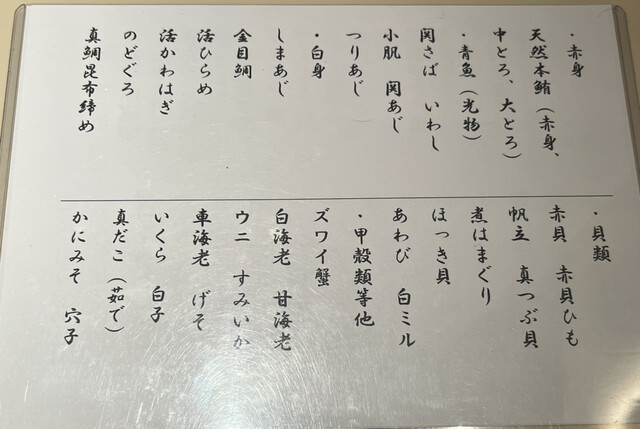 ・赤身
天然本鮪（赤身、
中とろ、大とろ）
・青魚（光物）
関さば いわし
小肌 関あじ
つりあじ
・白身
しまあじ
金目鯛
活ひらめ
活かわはぎ
のどぐろ
真鯛昆布締め
・貝類
赤貝 赤貝ひも
帆立 真つぶ貝
煮はまぐり
ほっき貝
あわび 白ミル
・甲殻類等他
ズワイ蟹
白海老 甘海老
ウニ すみいか
車海老 げそ
いくら 白子
真だこ（茹で）
かにみそ 穴子